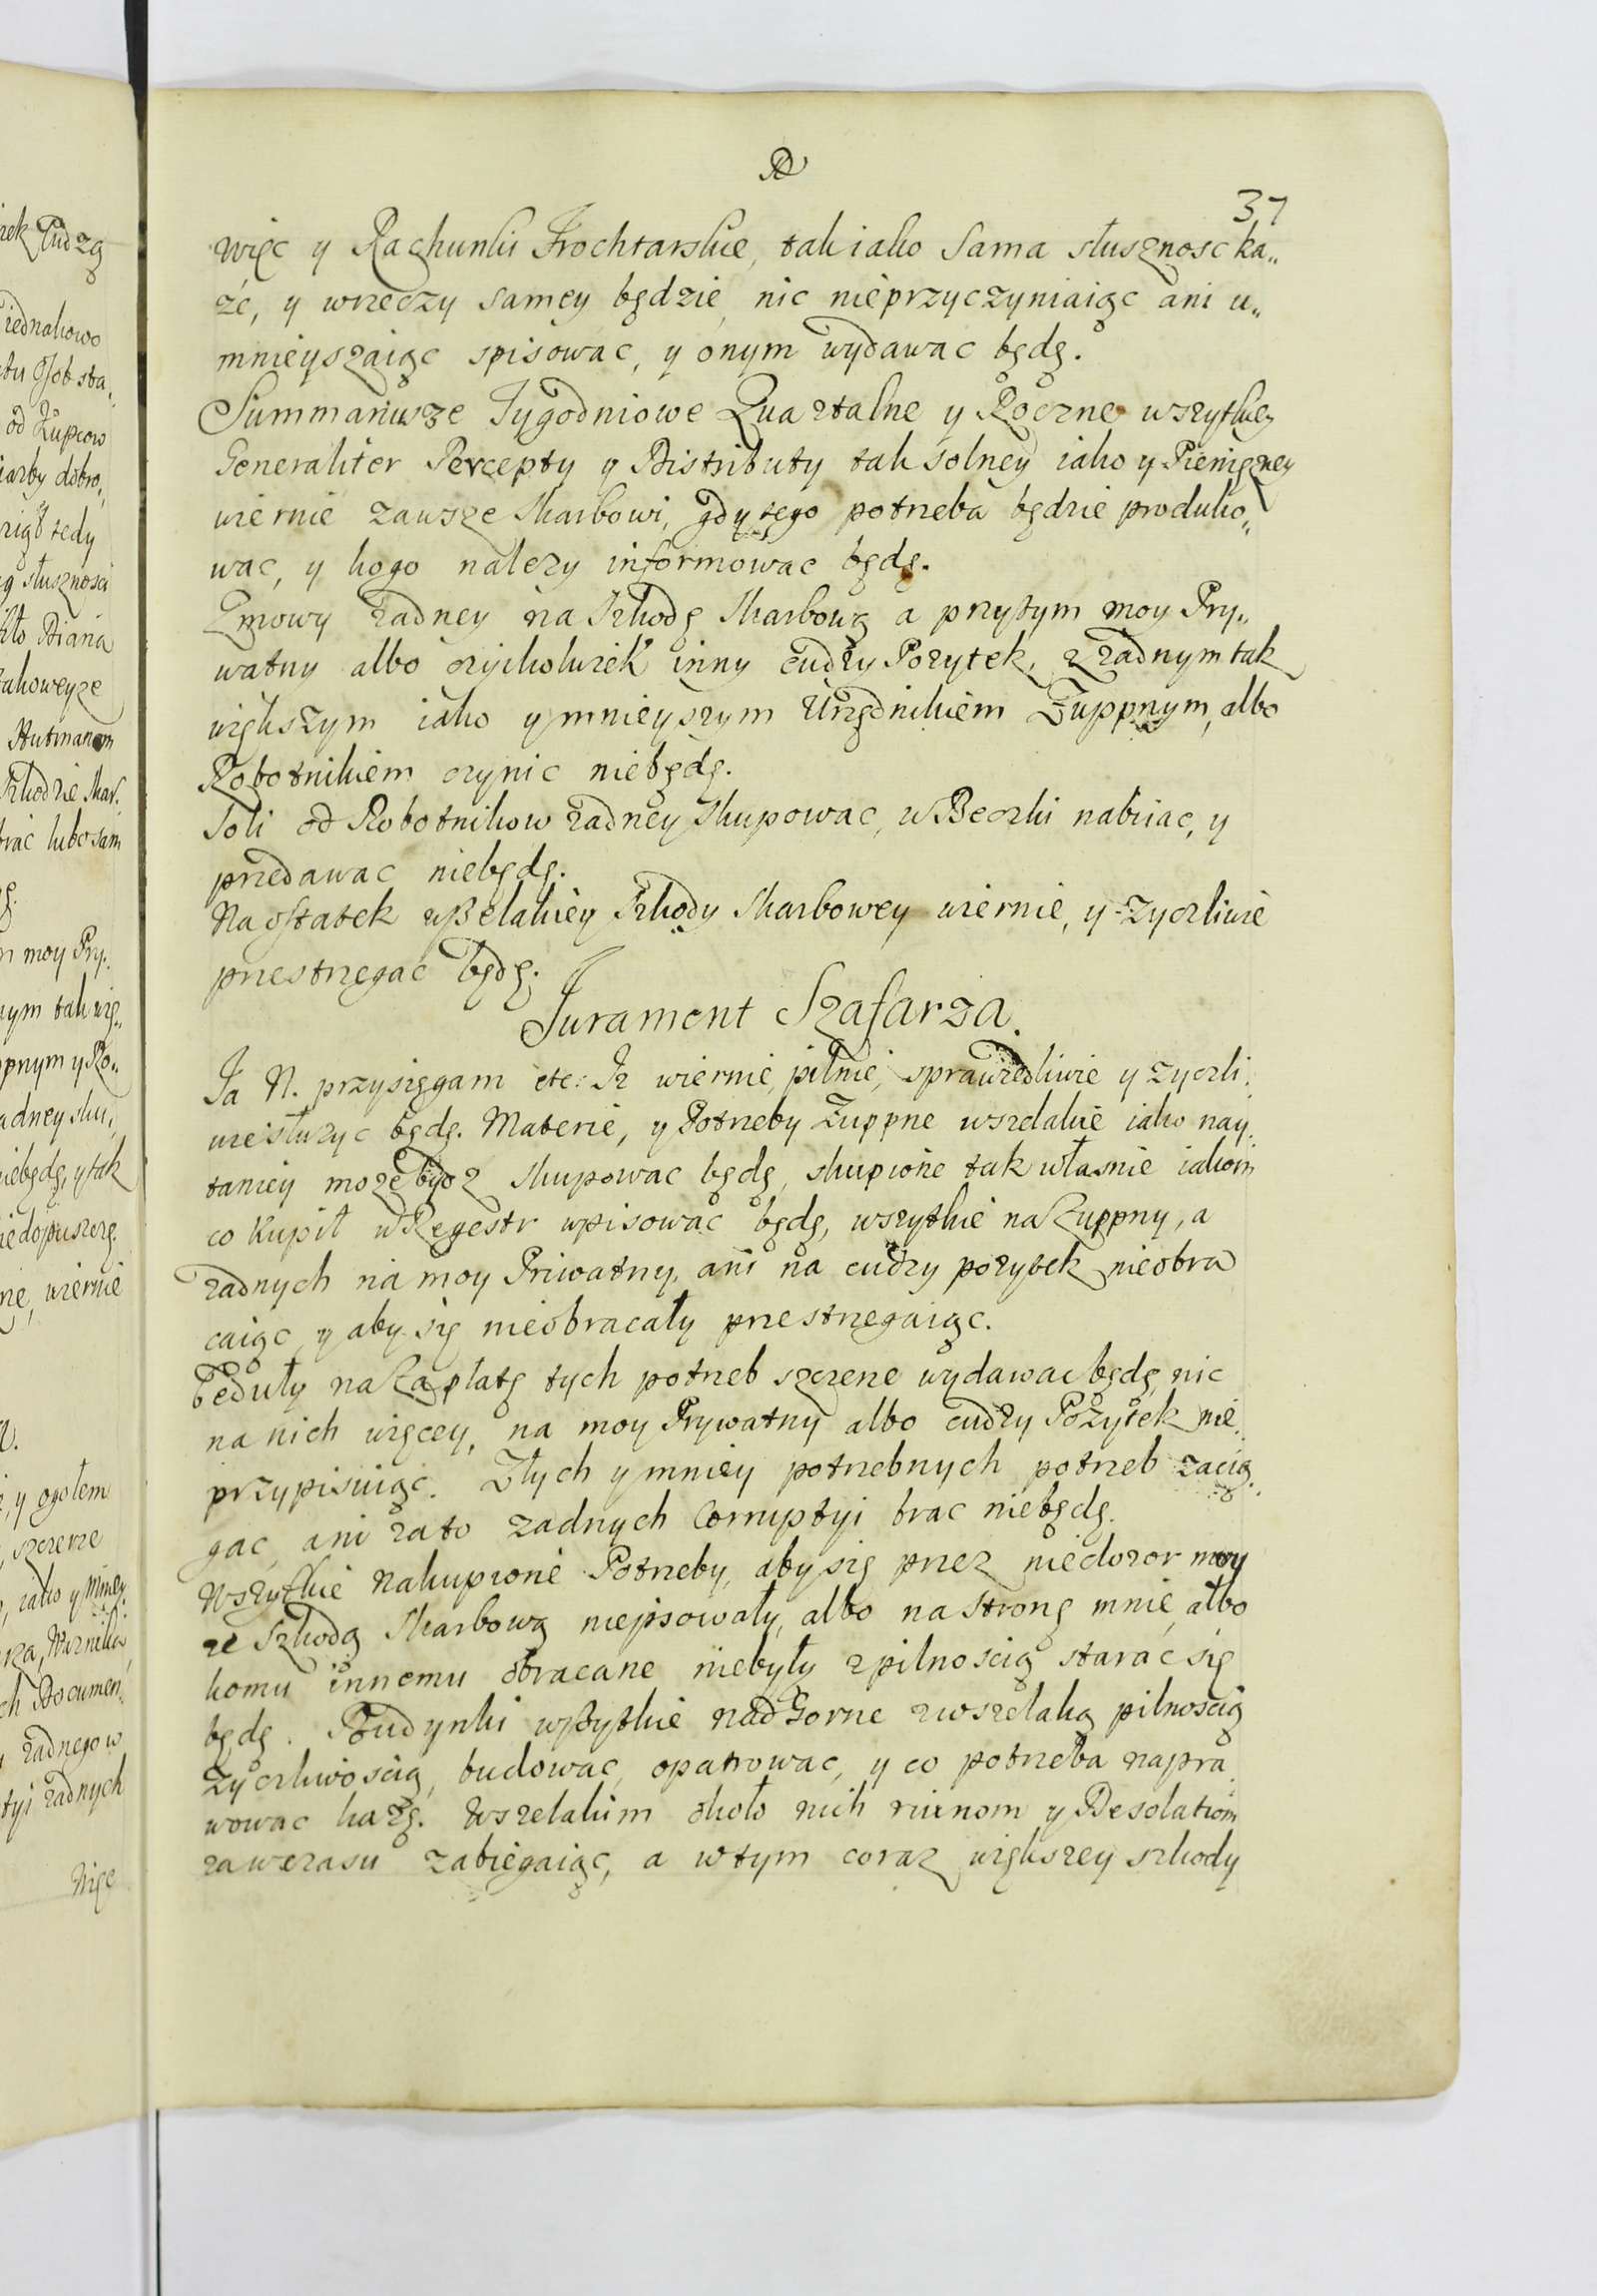 37
więc y Rachunki Trochtarskie, tak iako Sama słusznosc ka„
że, y wrzeczy samey będzie, nic nieprzyczyniaiąc ani u„
mnieyszaiąc spisowac, y onym wydawac będę.
Summariusze Tygodniowe Quartalne y Roczne wszytkiey
Generaliter Percepty y Distributy tak solney iako y Pienięzney
wiernie zawsze Skarbowi, gdy tego potrzeba będzie produko„
wac, y kogo nalezy informowac będę.
Zmowy zadney na Szkodę Skarbową a przytym moy Pry„
watny albo czyikolwiek inny cudzy Pozytek, z zadnym tak
większym iako y mnieyszym Urzędnikiem Zuppnym, albo
Robotnikiem czynic niebędę.
Soli od Robotnikow zadney skupowac, w Beczki nabiiac, y
przedawac niebędę.
Na ostatek wszelakiey Szkody Skarbowey wiernie, y zyczliwie
przestrzegac będę.
Jurament Szafarza.
Ja N. przysięgam etc: Iz wiernie, pilnie, sprawiedliwie y zyczli„
wie słuzyc będę. Materie, y Potrzeby Zuppne wszelakie iako nay„
taniey moze bydz skupowac będę, skupione tak własnie iakom
co kupił w Regestr wpisowac będę, wszytkie na Zuppny, a
zadnych na moy Priwatny, ani na cudzy pozytek nieobra
caiąc, y aby się nieobracały przestrzegaiąc.
Ceduły na Zapłatę tych potrzeb szczerze wydawac będę, nic
na nich więcey, na moy Prywatny albo cudzy Pożytek nie„
przypisuiąc. Złych y mniey potrzebnych potrzeb zacią„
gac, ani zato zadnych Corruptyi brac niebędę.
Wszytkie Nakupione Potrzeby, aby się przez niedozor moy
ze Szkodą Skarbową niepsowały, albo na stronę mnie, albo
komu innemu obracane niebyły z pilnoscią starać się
będę. Budynki wszytkie nad Gorne z wszelaką pilnoscią
zyczliwoscią, budowac, opatrowac, y co potrzeba napra„
wowac każę. Wszelakim około nich ruinom y Desolatiom
zawczasu zabiegaiąc, a w tym coraz większey szkody